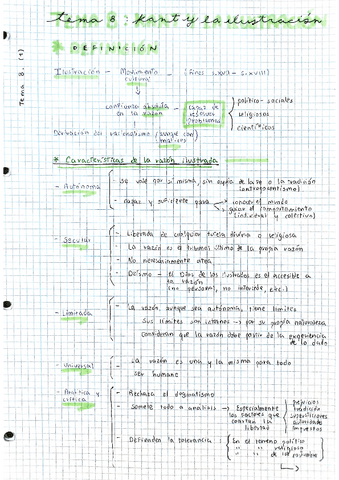 tema 8 : Kant y la ilustración
Tema 8. (1)
* DEFINICIÓN
Ilustración - Movimiento cultural - (fines s.XVII - s.XVIII)
confianza absoluta en su razón - capaz de resolver problemas
político - sociales
religiosos
científicos
Derivación del racionalismo (aunque con matices)
* Características de la razón ilustrada
- Autónoma
- se vale por sí misma, sin ayuda de la fe o la tradición
(antropocentrismo)
- capaz y suficiente para
conocer el mundo
guiar el comportamiento
(individual y colectivo)
- Secular
- Liberada de cualquier tutela divina o religiosa
- La razón es el tribunal último de la propia razón
- No necesariamente atea
- Deísmo - El Dios de los ilustrados es el accesible a
la razón
(no personal, no interviene, etc.)
- Limitada
- La razón aunque sea autónoma, tiene límites
Sus límites son internos → por su propia naturaleza
consideran que la razón debe partir de la experiencia
de lo dado
- Universal
- La razón es una y la misma para todo
ser humano
- Analítica y crítica
- Rechaza el dogmatismo
- Somete todo a análisis → Especialmente
los factores que
coartan la
libertad
prejuicios
tradición
supersticiones
autoridades
impuestas
- Defienden la tolerancia :
En el terreno político
" " religioso
" " de las costumbres